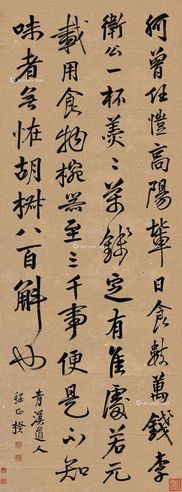 何曾任愷高陽輩日食數萬錢李
衛公一杯羹三萬錢定有佳處若元
載用食物椀器至三千事便是不知
味者無怪胡椒八百斛也
青溪道人
程正揆